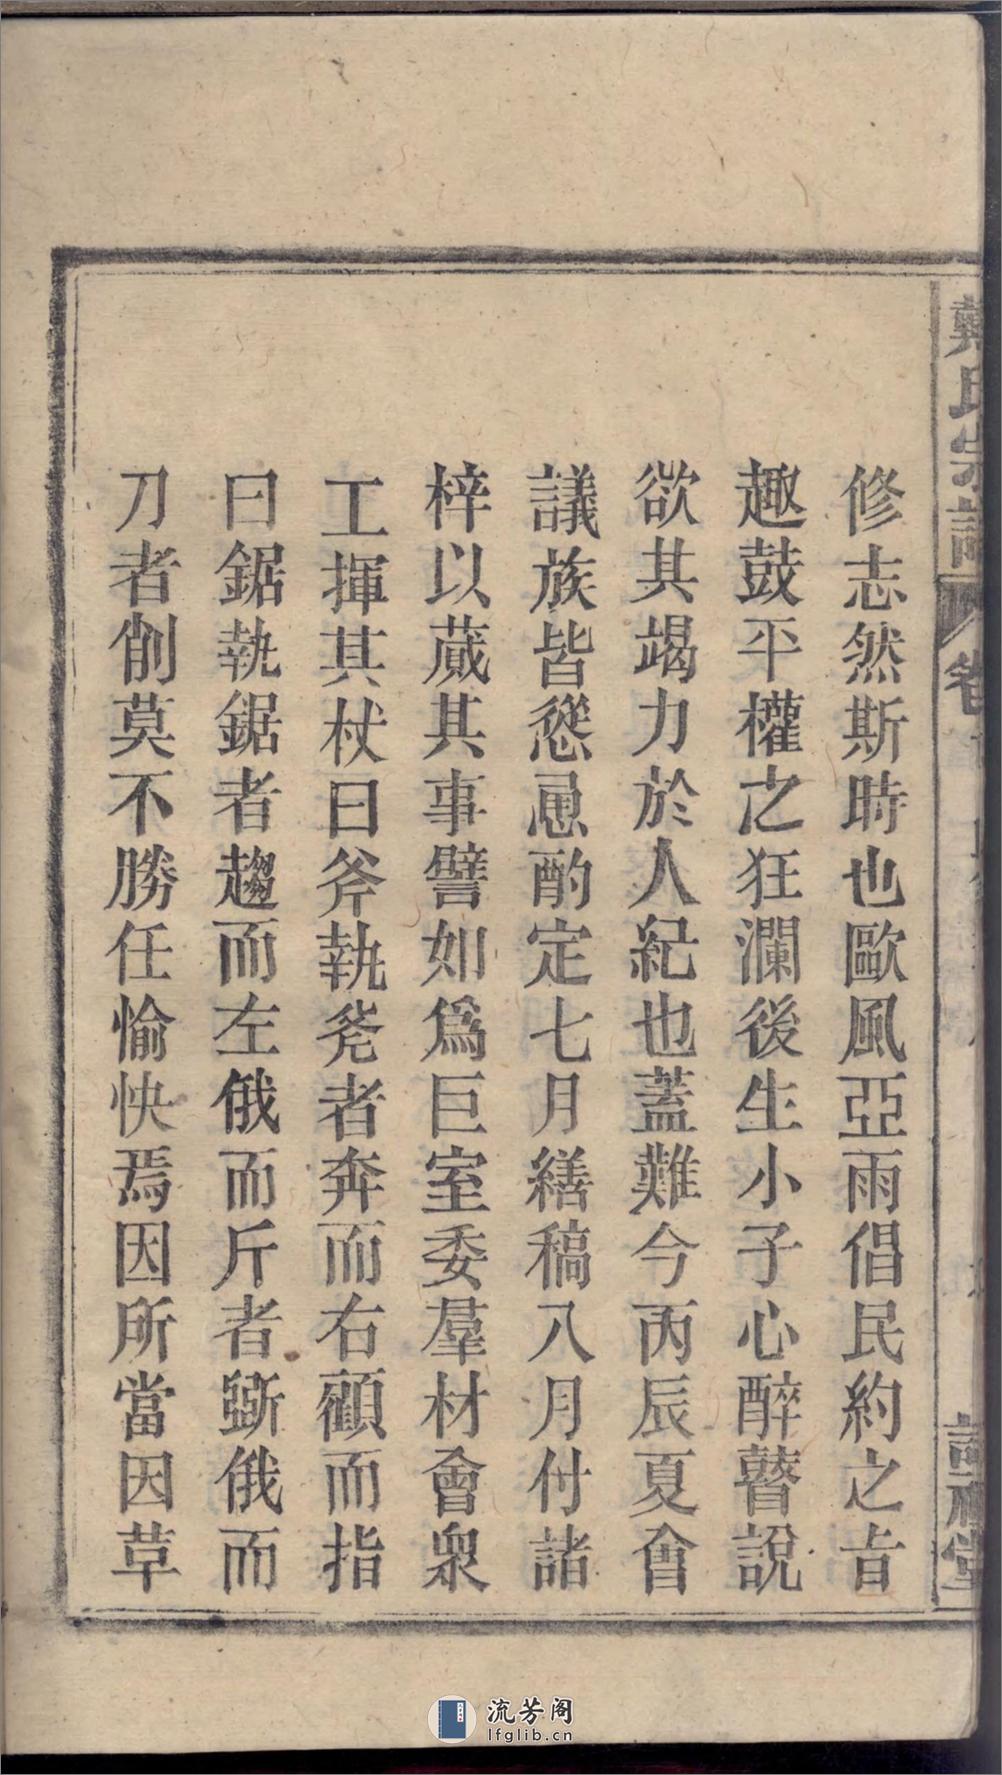 修志然斯時也歐風亞雨倡民約之㫖
趣鼓平權之狂瀾後生小子心醉瞽說
欲其竭力於人紀也蓋難今丙辰夏會
議族皆慫恿酌定七月繕稿八月付諸
梓以蕆其事譬如爲巨室委羣材會衆
工揮其杖曰斧執斧者奔而右顧而指
曰鋸執鋸者趨而左俄而斤者斲俄而
刀者削莫不勝任愉快焉因所當因草
戴氏宗譜
卷首
流芳阁
lfglib.cn